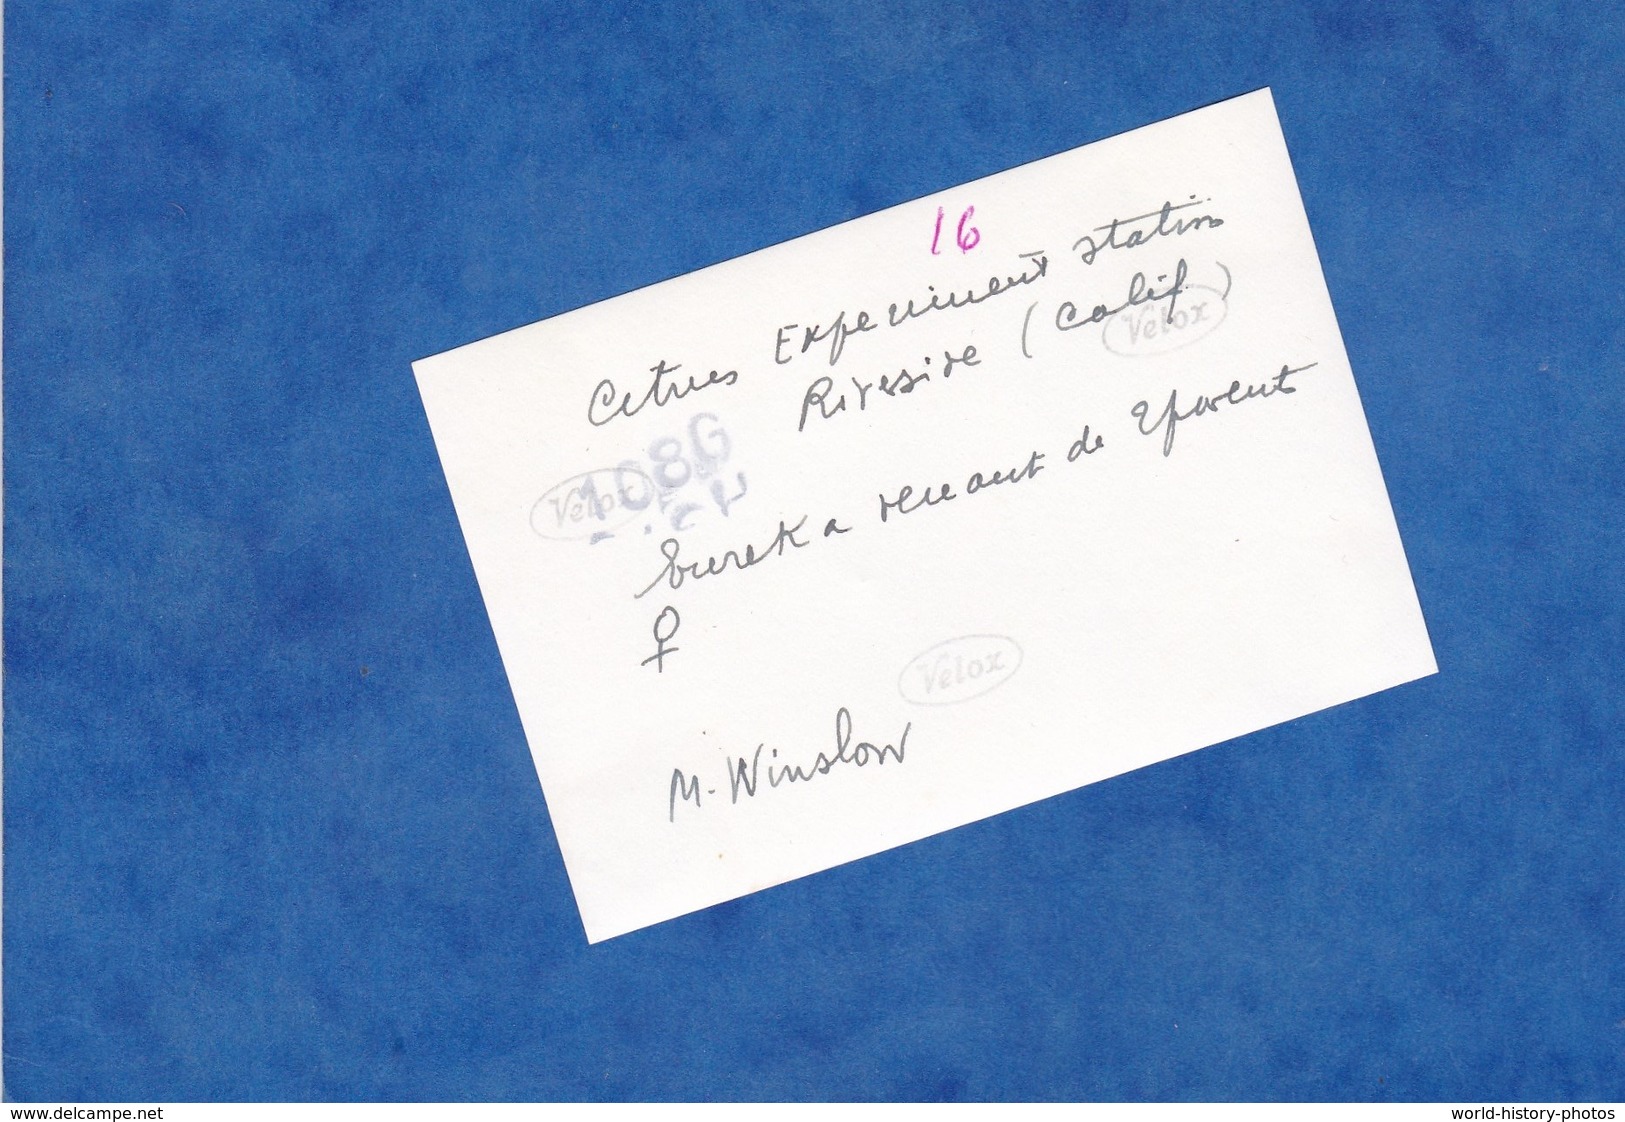 16
Citrus Experiment station
Riverside (Calif.)
Velox
1086
Velox
Eureka venant de
♀
Velox
M. Winslow
www.delcampe.net
world-history-photos